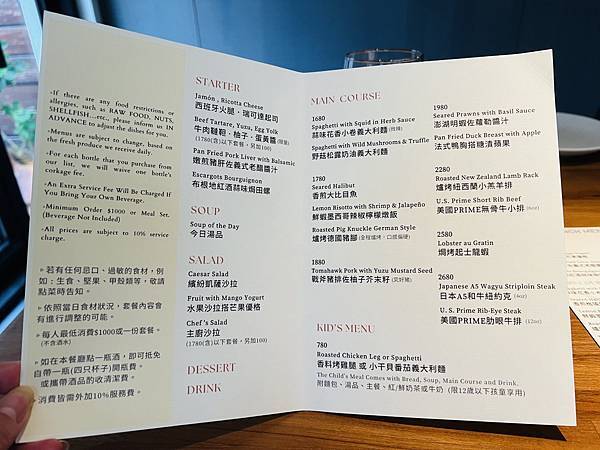 -If there are any food restrictions or
allergies, such as RAW FOOD, NUTS,
SHELLFISH....etc., please inform us IN
ADVANCE to adjust the dishes for you.
-Menus are subject to change, based on
the fresh produce we have daily.
-For each bottle that you purchase from
our list, we will waive one bottle's
corkage fee.
-An Extra Service Fee Will Be Charged if
You Bring Your Own Beverage.
-Minimum Order $1000 or Meal Set.
(Beverage Not Included)
-All prices are subject to 10% service
charge.
▹若有任何忌口、過敏的食材，例
如：生食、堅果、甲殼類等，敬請
點菜時告知。
▹依照當日食材狀況，套餐內容會
有進行調整的可能。
▹每人最低消費$1000或一份套餐。
(不含酒水)
▹如在本餐廳點一瓶酒，即可抵免
自帶一瓶(四只杯子)開瓶費。
或攜帶酒品酌收清潔費。
▹消費皆需外加10%服務費。
STARTER
Jamón , Ricotta Cheese
西班牙火腿．瑞可達起司
Beef Tartare, Yuzu, Egg Yolk
牛肉韃靼．柚子．蛋黃醬
(1780(含)以下套餐，另加100)
Pan Fried Pork Liver with Balsamic
嫩煎豬肝佐義式老醋醬汁
Escargots Bourguignon
布根地紅酒蒜味焗田螺
SOUP
Soup of the Day
今日湯品
SALAD
Caesar Salad
繽紛凱薩沙拉
Fruit with Mango Yogurt
水果沙拉搭芒果優格
Chef 's Salad
主廚沙拉
(1780(含)以下套餐，另加100)
DESSERT
DRINK
MAIN COURSE
1680
Spaghetti with Squid in Herb Sauce
蒜味花香小卷義大利麵
Spaghetti with Wild Mushrooms & Truffle
野菇松露奶油義大利麵
1780
Seared Halibut
香煎大比目魚
Lemon Risotto with Shrimp & Jalapeño
鮮蝦墨西哥辣椒檸檬燉飯
Roasted Pig Knuckle German Style
爐烤德國豬腳
1880
Tomahawk Pork with Yuzu Mustard Seed
戰斧豬排佐柚子芥末籽
1980
Seared Prawns with Basil Sauce
澎湖明蝦佐蘿勒醬汁
Pan Fried Duck Breast with Apple
法式鴨胸搭糖漬蘋果
2280
Roasted New Zealand Lamb Rack
爐烤紐西蘭小羔羊排
U.S. Prime Short Rib Beef
美國PRIME無骨牛小排 (6oz)
2580
Lobster au Gratin
焗烤起士龍蝦
2680
Japanese A5 Wagyu Striploin Steak
日本A5和牛紐約克 (4oz)
U.S. Prime Rib-Eye Steak
美國PRIME肋眼牛排 (12oz)
KID'S MENU
780
Roasted Chicken Leg or Spaghetti
香料烤雞腿 或 小干貝番茄義大利麵
The Child's Meal Comes with Bread, Soup, Main Course and Drink.
附麵包、湯品、主餐、紅/鮮奶茶或牛奶 (限12歲以下孩童享用)